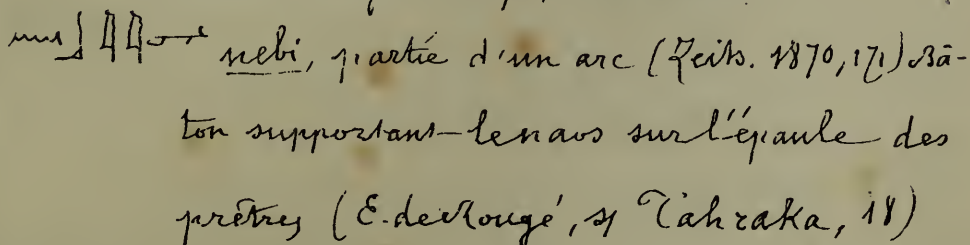 𓈖𓃀𓇋𓇋𓆱 nebi, partie d'un arc (Zeits. 1870, 171) Bâ-
ton supportant le naos sur l'épaule des
prêtres (E. de Rougé, Tahraka, 18)